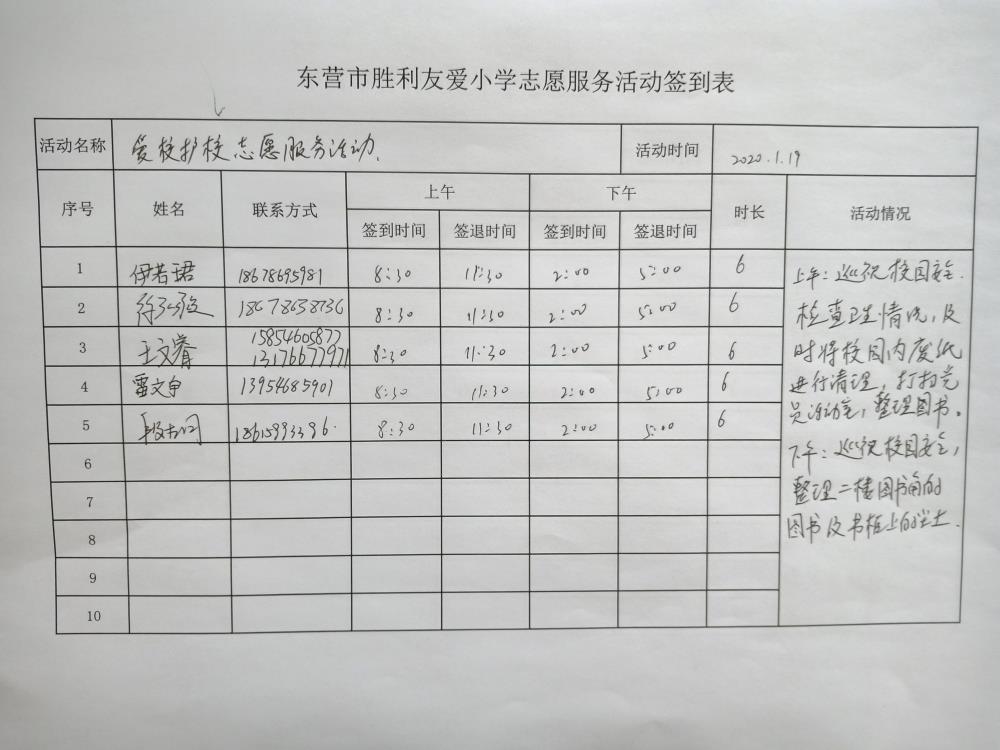 东营市胜利友爱小学志愿服务活动签到表
活动名称 爱校护校志愿服务活动. 活动时间 2020.1.19
序号 姓名 联系方式 上午 下午 时长 活动情况
签到时间 签退时间 签到时间 签退时间
1 伊若珺 18678695981 8:30 11:30 2:00 5:00 6
2 18678638736 8:30 11:30 2:00 5:00 6
3 王文睿 15854605877 8:30 11:30 2:00 5:00 6
13176677971
4 雷文 13954685901 8:30 11:30 2:00 5:00 6
5 段 18615993396. 8:30 11:30 2:00 5:00 6
6
7
8
9
10
上午:巡视校园安全.
检查卫生情况,及
时将校园内废纸
进行清理,打扫党
员活动室,整理图书。
下午:巡视校园安全,
整理二楼图书角的
图书及书柜上的尘土.